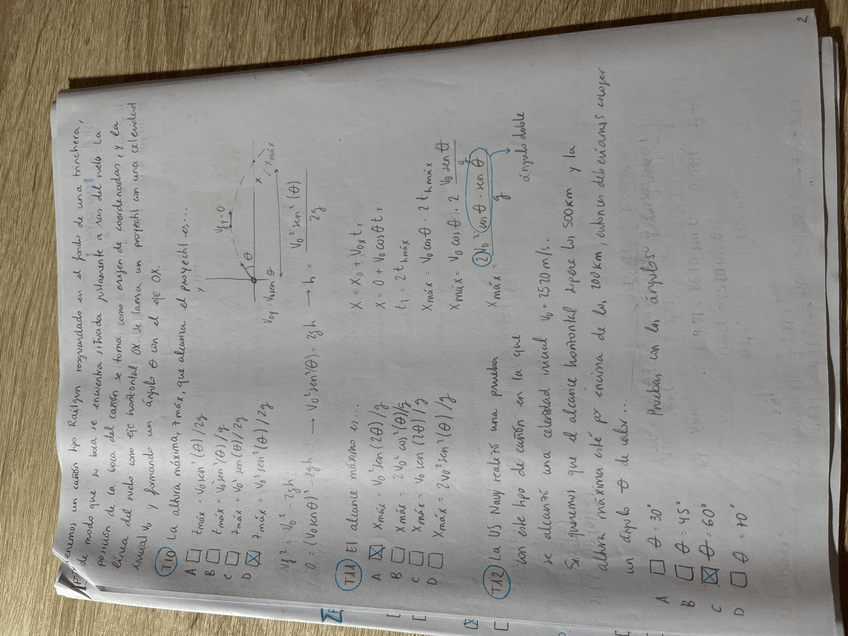 onemos un cañón tipo Railgun resguardado en el fondo de una trinchera,
de modo que su boca se encuentra situada justamente a ras del suelo. La
posición de la boca del cañón se toma como origen de coordenadas, y la
línea del suelo como eje horizontal OX. Se lanza un proyectil con una celeridad
inicial v₀ y formando un ángulo θ con el eje OX.
T10 La altura máxima, zmáx, que alcanza el proyectil es...
A zmáx = v₀ sen²(θ)/2g
B zmáx = v₀² sen²(θ)/g
C zmáx = v₀² sen(θ)/2g
D zmáx = v₀² sen²(θ)/2g
y
vy=0
θ
x
xmáx
v₀y = v₀ sen θ
vy² = v₀² - 2gh
0 = (v₀ sen θ)² - 2gh → v₀² sen²(θ) = 2gh → h = v₀² sen²(θ) / 2g
T11 El alcance máximo es...
A xmáx = v₀² sen(2θ)/g
B xmáx = 2v₀² cos²(θ)/g
C xmáx = v₀ sen(2θ)/g
D xmáx = 2v₀² sen²(θ)/g
x = x₀ + v₀x t₁
x = 0 + v₀ cos θ t₁
t₁ = 2 t hmáx
xmáx = v₀ cos θ · 2 t hmáx
xmáx = v₀ cos θ · 2 v₀ sen θ / g
xmáx = 2 v₀² cos θ · sen θ / g
ángulo doble
T12 La US Navy realizó una prueba
con este tipo de cañón en la que
se alcanzó una celeridad inicial v₀ = 2520 m/s.
Si queremos que el alcance horizontal supere los 500 km y la
altura máxima esté por encima de los 200 km, entonces deberíamos escoger
un ángulo θ de valor...
A θ = 30°
B θ = 45°
C θ = 60°
D θ = 70°
Pruebas con los ángulos
2